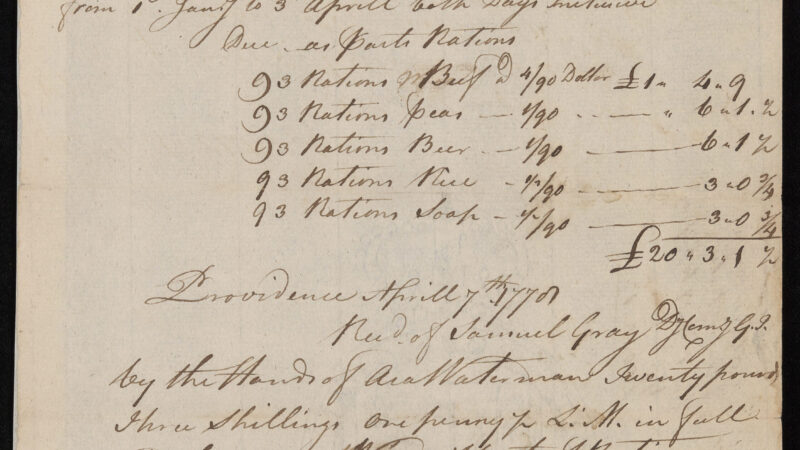 from 1st Jany to 3 Aprill both Days Inclusive
Due as Parts Rations
93 Rations Beef @ 4/90 Dollar £1 " 4 " 9
93 Rations Peas — 1/90 — " 6 " 1 " ½
93 Rations Beer — 1/90 — 6 " 1 ½
93 Rations Rice — ½/90 — 3 " 0 ¾
93 Rations Soap — ½/90 — 3 " 0 ¾
£20 " 3 " 1 ½
Providence Aprill 7th 1778
Recd. of Samuel Gray
by the Hands of Asa Waterman Twenty pounds
Three Shillings one penny ½ L.M. in full